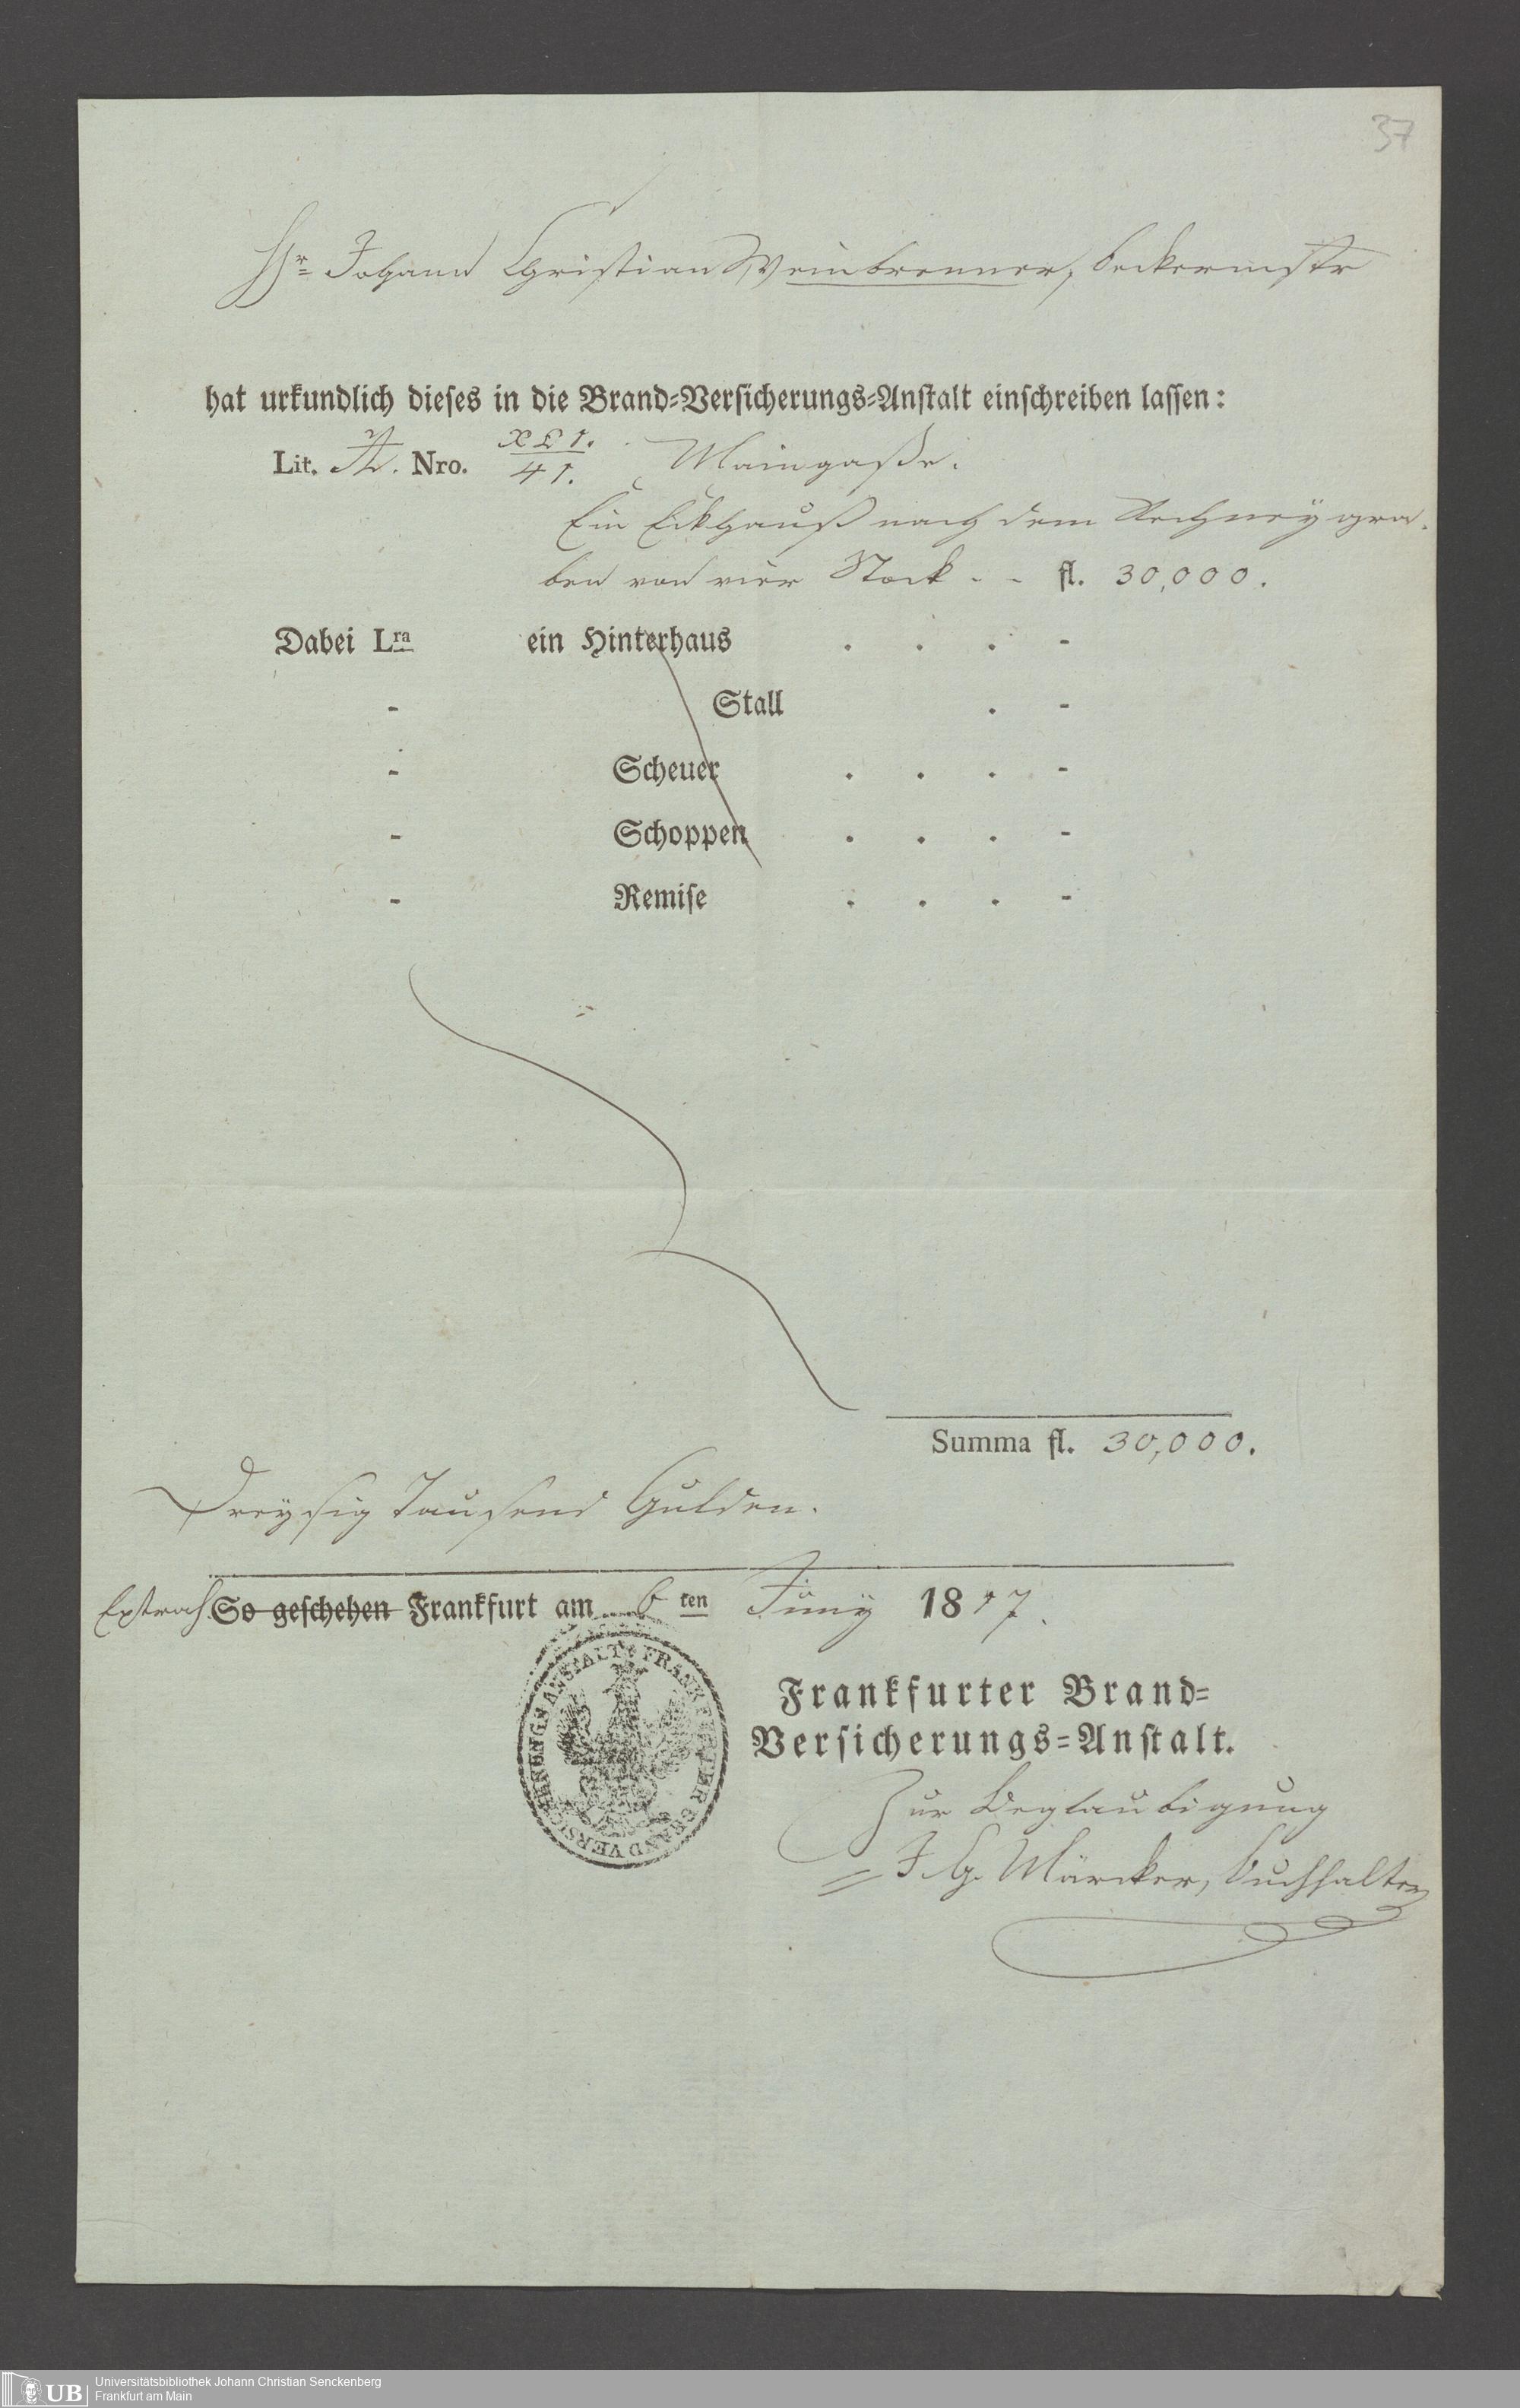 37
Hr Johann Christian Weinbrenner, beckermstr
hat urkundlich dieses in die Brand-Versicherungs-Anstalt einschreiben lassen:
Lit. A. Nro. XLI. / 41. Maingaße.
Ein Eckhauß nach dem Rechneÿgra-
ben von vier Stock - - fl. 30,000.
Dabei Lra ein Hinterhaus . . . -
- Stall . -
- Scheuer . . . -
- Schoppen . . . -
- Remise . . . -
Summa fl. 30,000.
Dreÿsig Tausend Gulden.
Extrah. So geschehen Frankfurt am 6ten Junÿ 1817.
FRANKFURTER BRAND VERSICHERUNGS ANSTALT
Frankfurter Brand-
Versicherungs-Anstalt.
Zur Beglaubigung
J. G. Märcker, Buchhalter
UB
Universitätsbibliothek Johann Christian Senckenberg
Frankfurt am Main